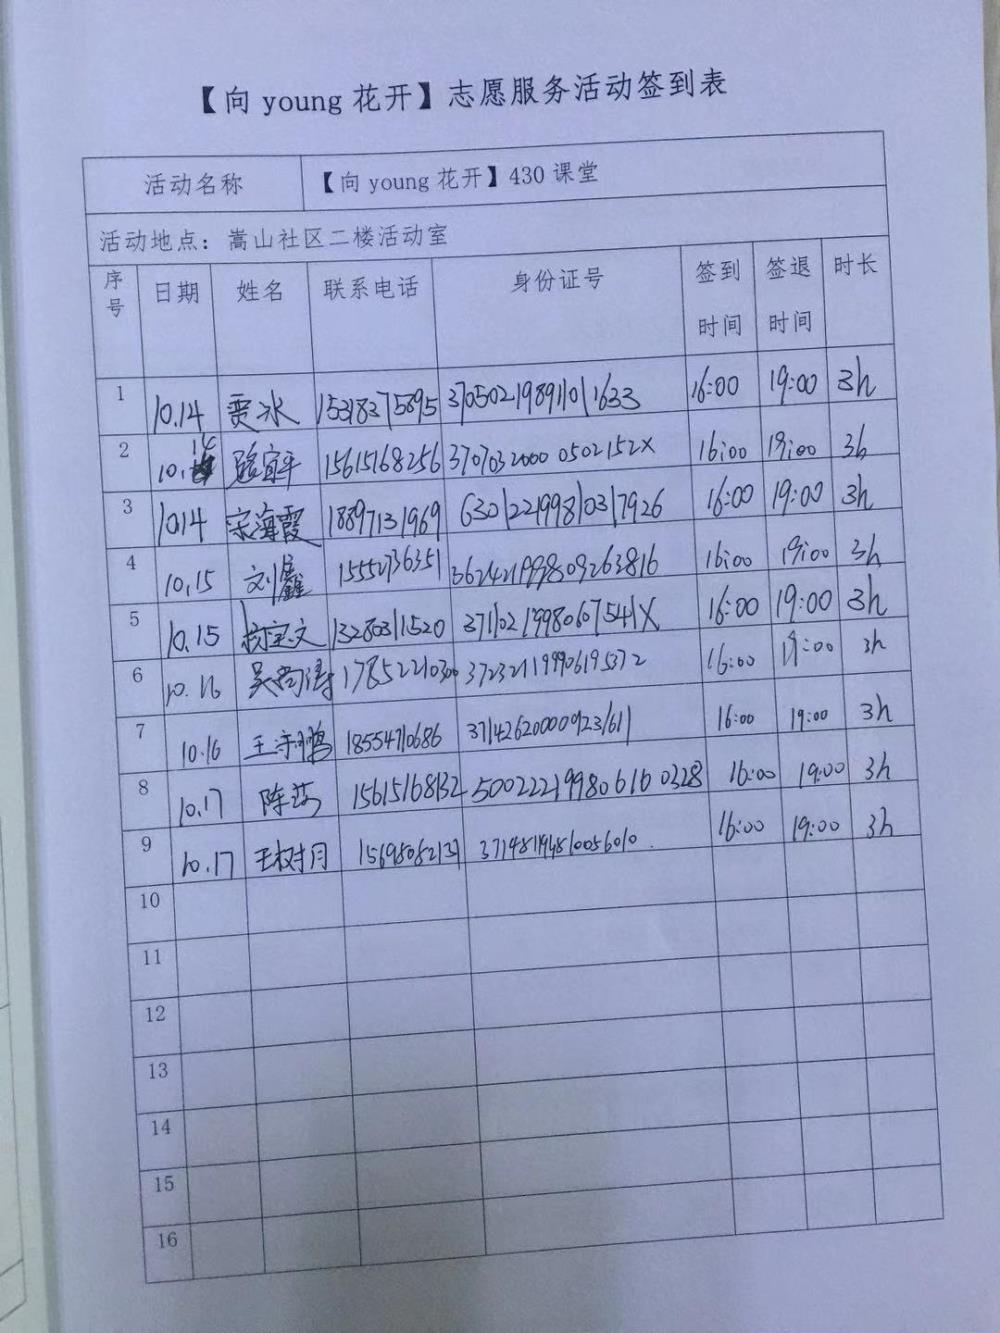 【向 young 花开】志愿服务活动签到表
活动名称 【向 young 花开】430 课堂
活动地点：嵩山社区二楼活动室
序号 日期 姓名 联系电话 身份证号 签到时间 签退时间 时长
1 10.14 贾冰 15318375895 370502198911011633 16:00 19:00 3h
2 10.14 骆宜平 15615168256 37070320000502152X 16:00 19:00 3h
3 10.14 宋海霞 18897131969 630122199810317926 16:00 19:00 3h
4 10.15 刘鑫 15552736351 362421199809263816 16:00 19:00 3h
5 10.15 宝文 13280311520 37110219980607541X 16:00 19:00 3h
6 10.16 吴 17852210300 372321199906195372 16:00 19:00 3h
7 10.16 王 鹏 18554710686 371426200009231611 16:00 19:00 3h
8 10.17 陈 15615168132 500222199806160328 16:00 19:00 3h
9 10.17 王树月 16:00 19:00 3h
10
11
12
13
14
15
16